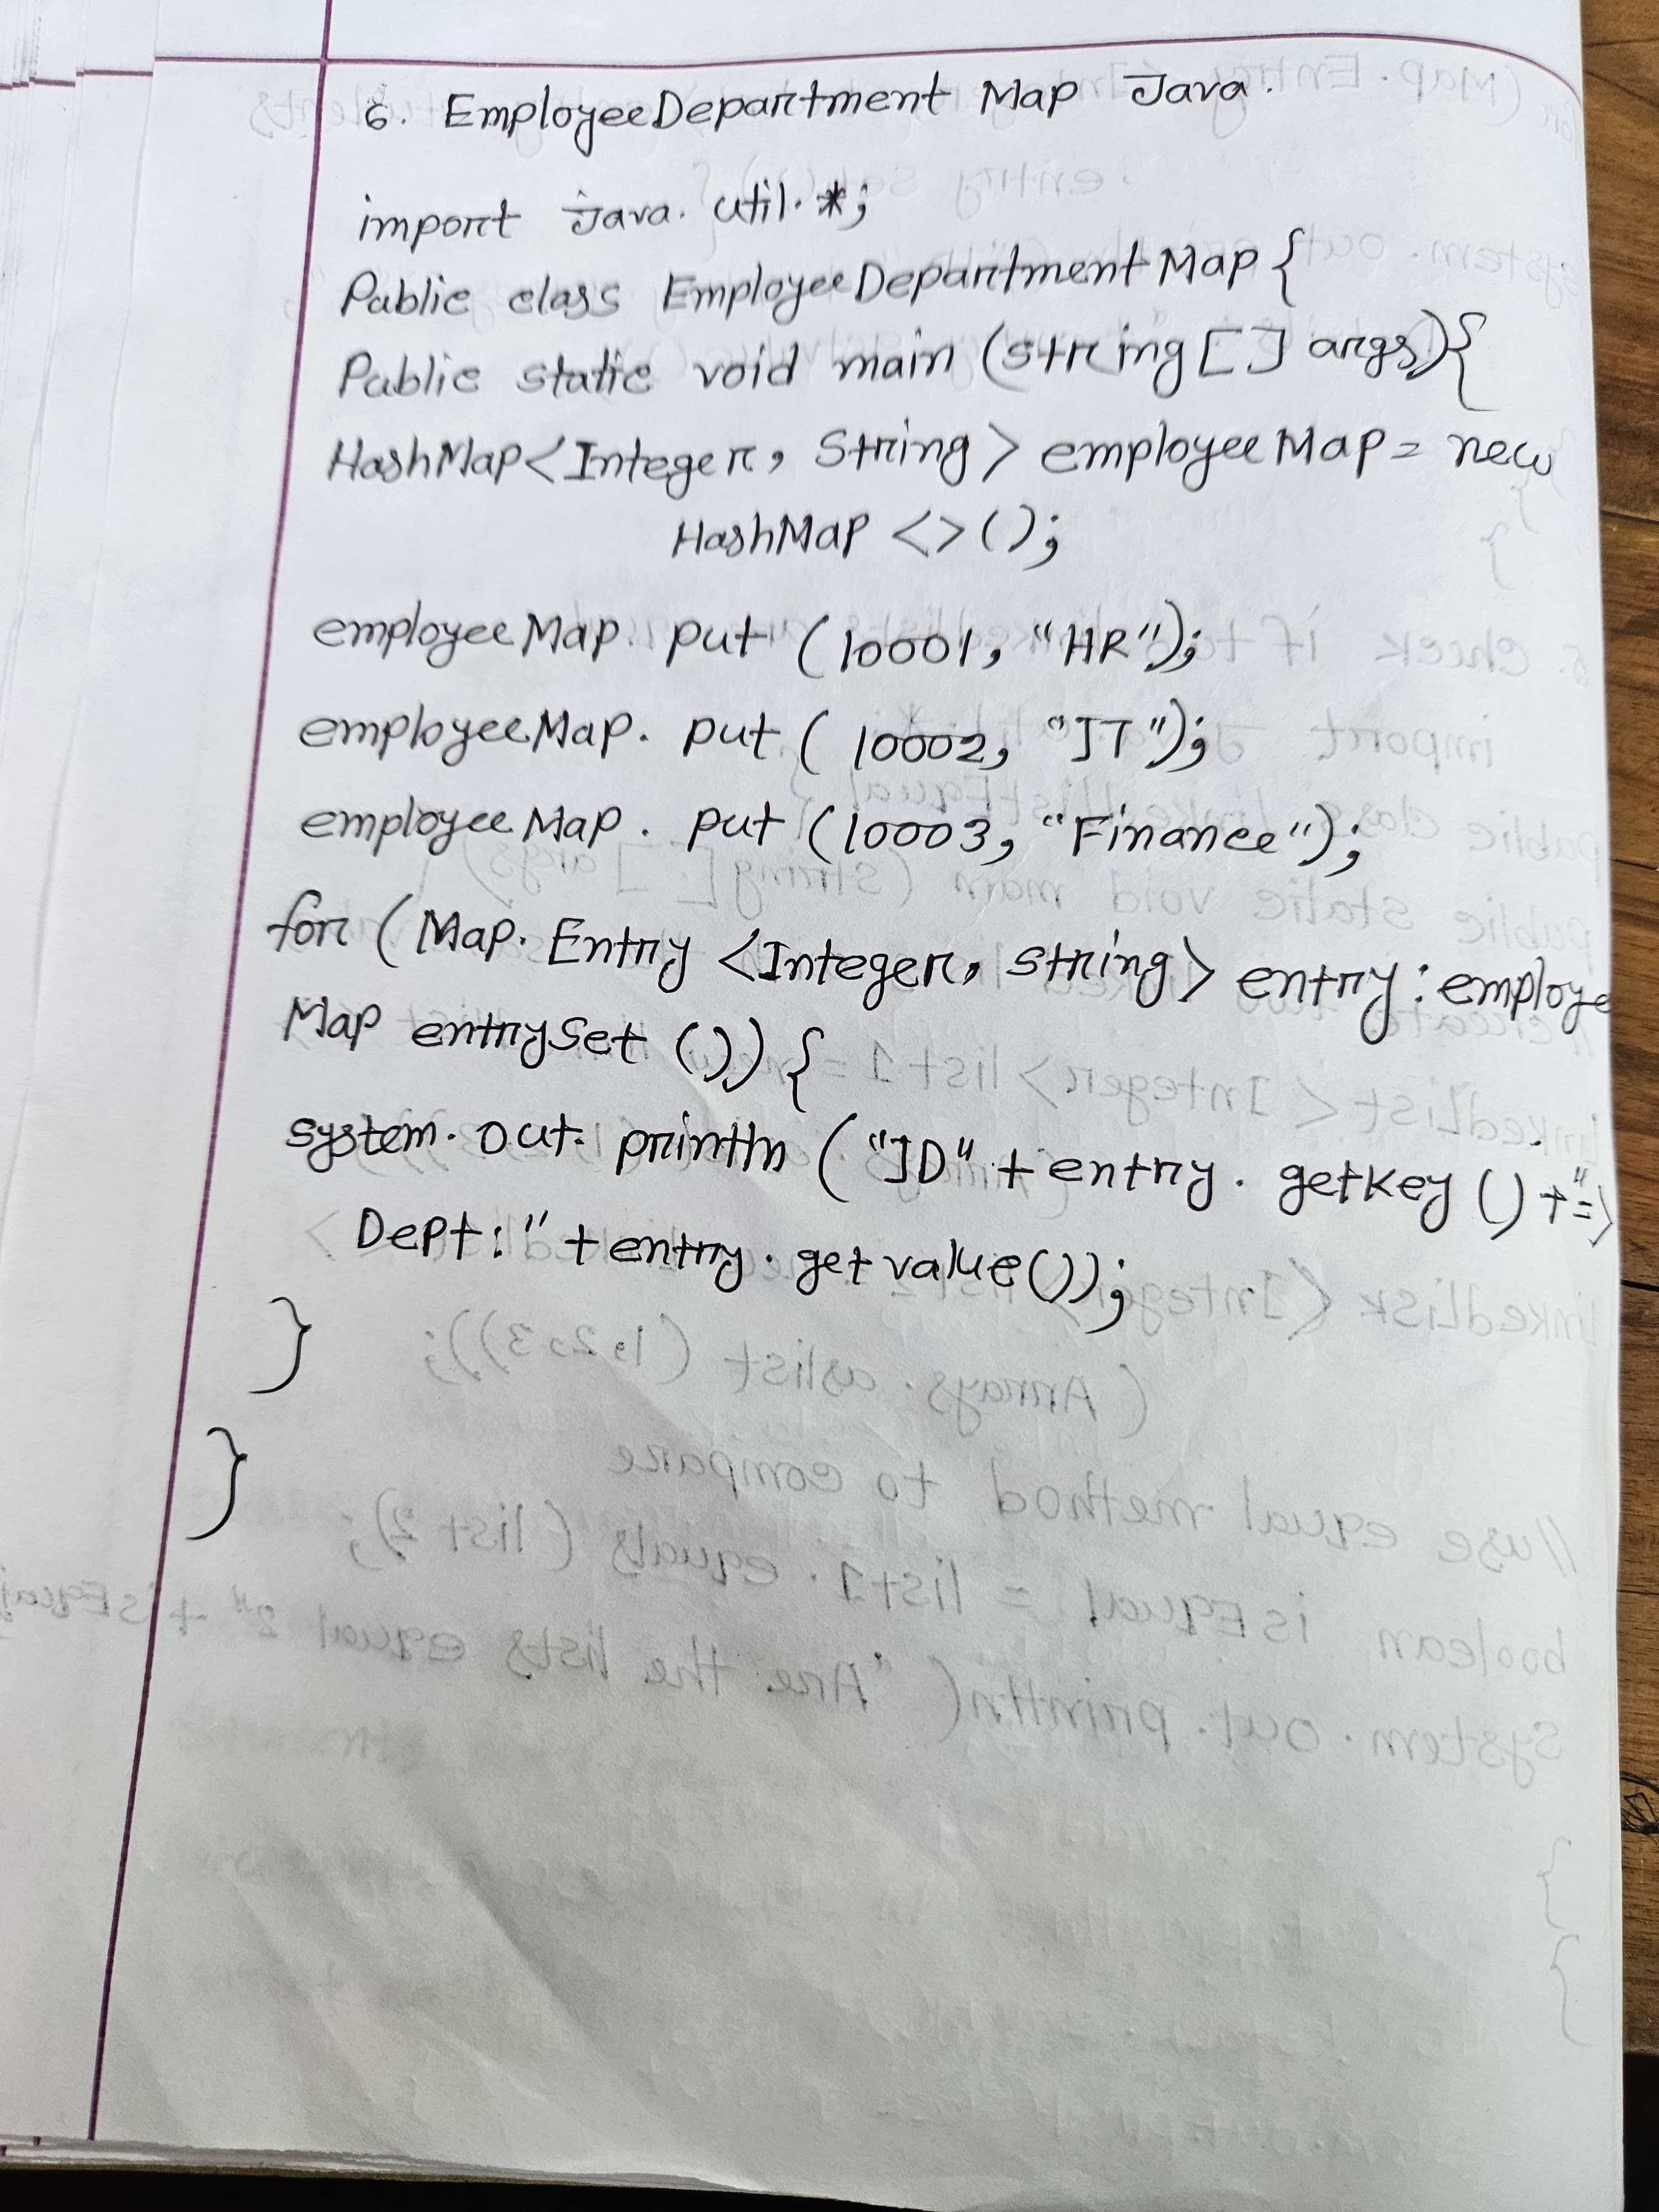 6. EmployeeDepartment Map Java.
import Java. util.*;
Public class EmployeeDepartmentMap {
Public static void main (string [] args){
HashMap<Integer, String> employeeMap = new
HashMap <>();
employeeMap. put (10001, "HR");
employeeMap. put ( 10002, "IT");
employeeMap. put (10003, "Finance");
for ( Map. Entry <Integer, string> entry : employe
Map entrySet ()) {
system. out. println ("ID" + entry. getkey () + "=>
Dept:" + entry. get value());
}
}